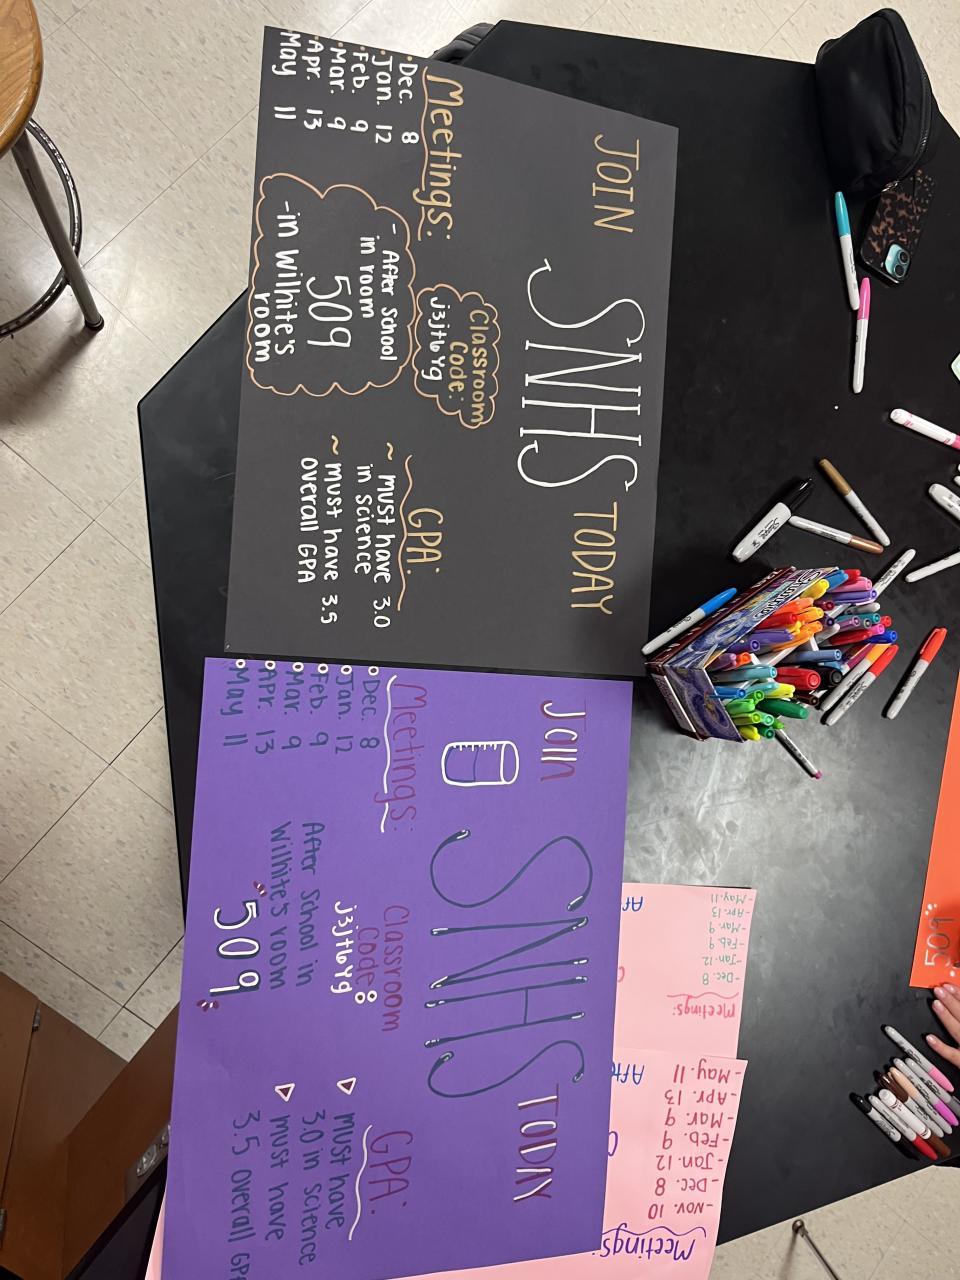 JOIN
SNHS
TODAY
Meetings:
·Dec. 8
·Jan. 12
·Feb. 9
·Mar. 9
·Apr. 13
·May 11
Classroom
Code:
j3jtb4g
- After School
in room
509
-in Wilhite's
room
GPA:
~ must have 3.0
in science
~ must have 3.5
overall GPA
Join
SNHS
TODAY
Meetings:
Dec. 8
Jan. 12
Feb. 9
Mar. 9
Apr. 13
May 11
Classroom
Code:
j3jtb4g
After School in
Wilhite's room
509
GPA:
▷ must have
3.0 in science
▷ must have
3.5 overall GPA
Meetings:
-Dec. 8
-Jan. 12
-Feb. 9
-Mar. 9
-Apr. 13
-May. 11
Meetings:
-Nov. 10
-Dec. 8
-Jan. 12
-Feb. 9
-Mar. 9
-Apr. 13
-May. 11
509
Sharpie